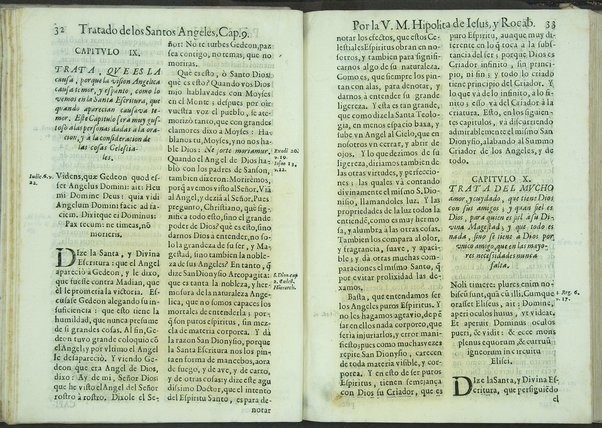 32 Tratado de los Santos Angeles, Cap. 9.
CAPITVLO IX.
TRATA, QVE ES LA
causa, porque la vision Angelica
causa temor, y espanto, como lo
vemos en la Santa Escritura, que
quando aparecian causava te-
mor. Este Capitulo sera muy gus-
toso à las personas dadas a la ora-
cion, y a la consideracion de
las cosas Celestia-
les.
Iudic. 6. v.
22.
Videns, quæ Gedeon quod es-
set Angelus Domini: ait: Heu
mi Domine Deus: quia vidi
Angelum Domini facie ad fa-
ciem. Dixitque ei Dominus:
Pax tecum: ne timeas, nõ
morieris.
Dize la Santa, y Divina
Escritura: que el Angel
apareciò a Gedeon, y le dixo,
que fuesse contra Madian, que
él le prometia la victoria. Ef-
cusase Gedeon alegando su in-
suficiencia: que esto tiene la
humildad, que nunca presume
de si grandes cosas. Al fin, Ge-
deon tuvo grande coloquio cõ
el Angel; y por ultimo el Angel
se desapareciò. Y viendo Gede-
on que era Angel de Dios,
dixo: Ay de mi, Señor Dios
que he visto el Angel del Señor
rostro a rostro. Dixole el Se-
ñor: No te turbes Gedeon, paz
sea contigo, no temas, que no
moriràs.
Que es esto, ò Santo Dios!
que es esto? Quando vos Dios
mio hablavades con Moyses
en el Monte; despues por oir
vuestra voz el pueblo, se ate-
morizò tanto, que con grandes
clamores dixo a Moyses: Ha-
blanos tu, Moyses, y no nos ha-
ble Dios: Ne forte moriamur,
Quando el Angel de Dios ha-
blò con los padres de Sanson,
tambien dizeron: Moriremos,
porque avemos visto al Señor.
Vià al Angel, y dezià al Señor. Pues
pregunto, Christiano, què sig-
nifica todo esto, sino el grande
poder de Dios? què es esto, sino
darnos Dios a entender, no so-
lo la grandeza de su ser, y Ma-
gestad, sino tambien la noble-
za de sus Angeles? En tanto, q̃
dize San Dionysio Areopagita:
que es tanta la nobleza, y her-
mosura de la naturaleza Ange-
lica, que no somos capaces los
mortales de entenderla: por
q̃ son puros espiritus, sin mez-
cla de materia corporea. Y dà
la razon San Dionysio, porque
la Santa Escritura nos los pin-
ta en forma de mancebos, aora
de fuego, de ave, y de carros, y
de otras cosas: y dize este agu-
dissimo Doctor, que el intento
del Espiritu Santo, es para de-
notar
Exodi 20.
v. 19.
Iudic. 13.
v. 22.
S. Dion. cap.
2. Cælest.
Hierarch.
Por la V. M. Hipolita de Iesus, y Rocab. 33
notar los efectos, que estos Ce-
lestiales Espiritus obran en no-
sotros, y tambien para signifi-
carnos algo de su naturaleza.
Como es que nos los pintan
con alas, para denotarnos, y
darnos a entender su grande
ligereza. Y esta es tan grande,
que como dize la Santa Teolo-
gia, en un instante baxa, y
sube un Angel al Cielo, que en
nosotros un cerrar, y abrir de
ojo. Y lo que dezimos de su li-
gereza, diriamos tambien de
las otras virtudes, y perfeccio-
nes; las quales va contando
divinamente el mismo S. Dio-
nisio, llamandoles luz. Y las
propiedades de la luz todos la
entiende, como es muy hermo-
sa, y alumbra a todas las cosas.
Tambien los compara al olor,
y fragancia, suave, armonia, y
de otras diversas maneras: y cõ
paraciones el mismo Santo, q̃
por evitar prolixidad las de-
xamos.
Basta, que entendamos ser
los Angeles puros Espiritus. Y
no les hagamos agravio, de pẽ-
sar en ellos nada corporeo, que
seria injuriarlos, y errar mani-
fiesto; pues como muchas veces
repite San Dionysio, carecen
de todo lo que es corporeo, y
quantitativo. Y en este ser puros
Espiritus, tienen semejança
con Dios su Criador, que es
puro Espiritu, aunque muy di-
ferente en lo q̃ toca a la subs-
tancia del ser; porque el Cria-
dor es sin principio, sin prin-
cipio, ni fin; y todo lo criado
tiene principio del Criador. Y
lo que va de lo infinito, a lo fi-
nito; esso va del Criador à la
criatura. Esto, en los siguien-
tes capitulos, và difundiendo
admirablemente el mismo San
Dionysio, alumbrado de la
summa Luz de los Angeles, y
de todo.
CAPITVLO X.
TRATA DEL MVCHO
amor, y cuydado, que tiene Dios
con sus amigos; y quan fiel es
Dios, para quien es fiel a su Di-
vina Magestad, y que todo es
nada, sino solo tener a Dios, por
unico amigo, que en las mayo-
res necessidades nunca
falta.
Noli timere: plures enim no-
biscum sunt, quã cũ illis. Cumque
orasset Eliseus, ait: Domine,
aperi oculos huius, ut videat.
Et aperuit Dominus oculos
pueri, & vidit: & ecce mons
plenus equorum, & curruũ
igneorum in circuitu
Elisei.
4. Reg. 6.
v. 17.
Dize la Santa, y Divina Es-
critura, que persiguiẽdo
el